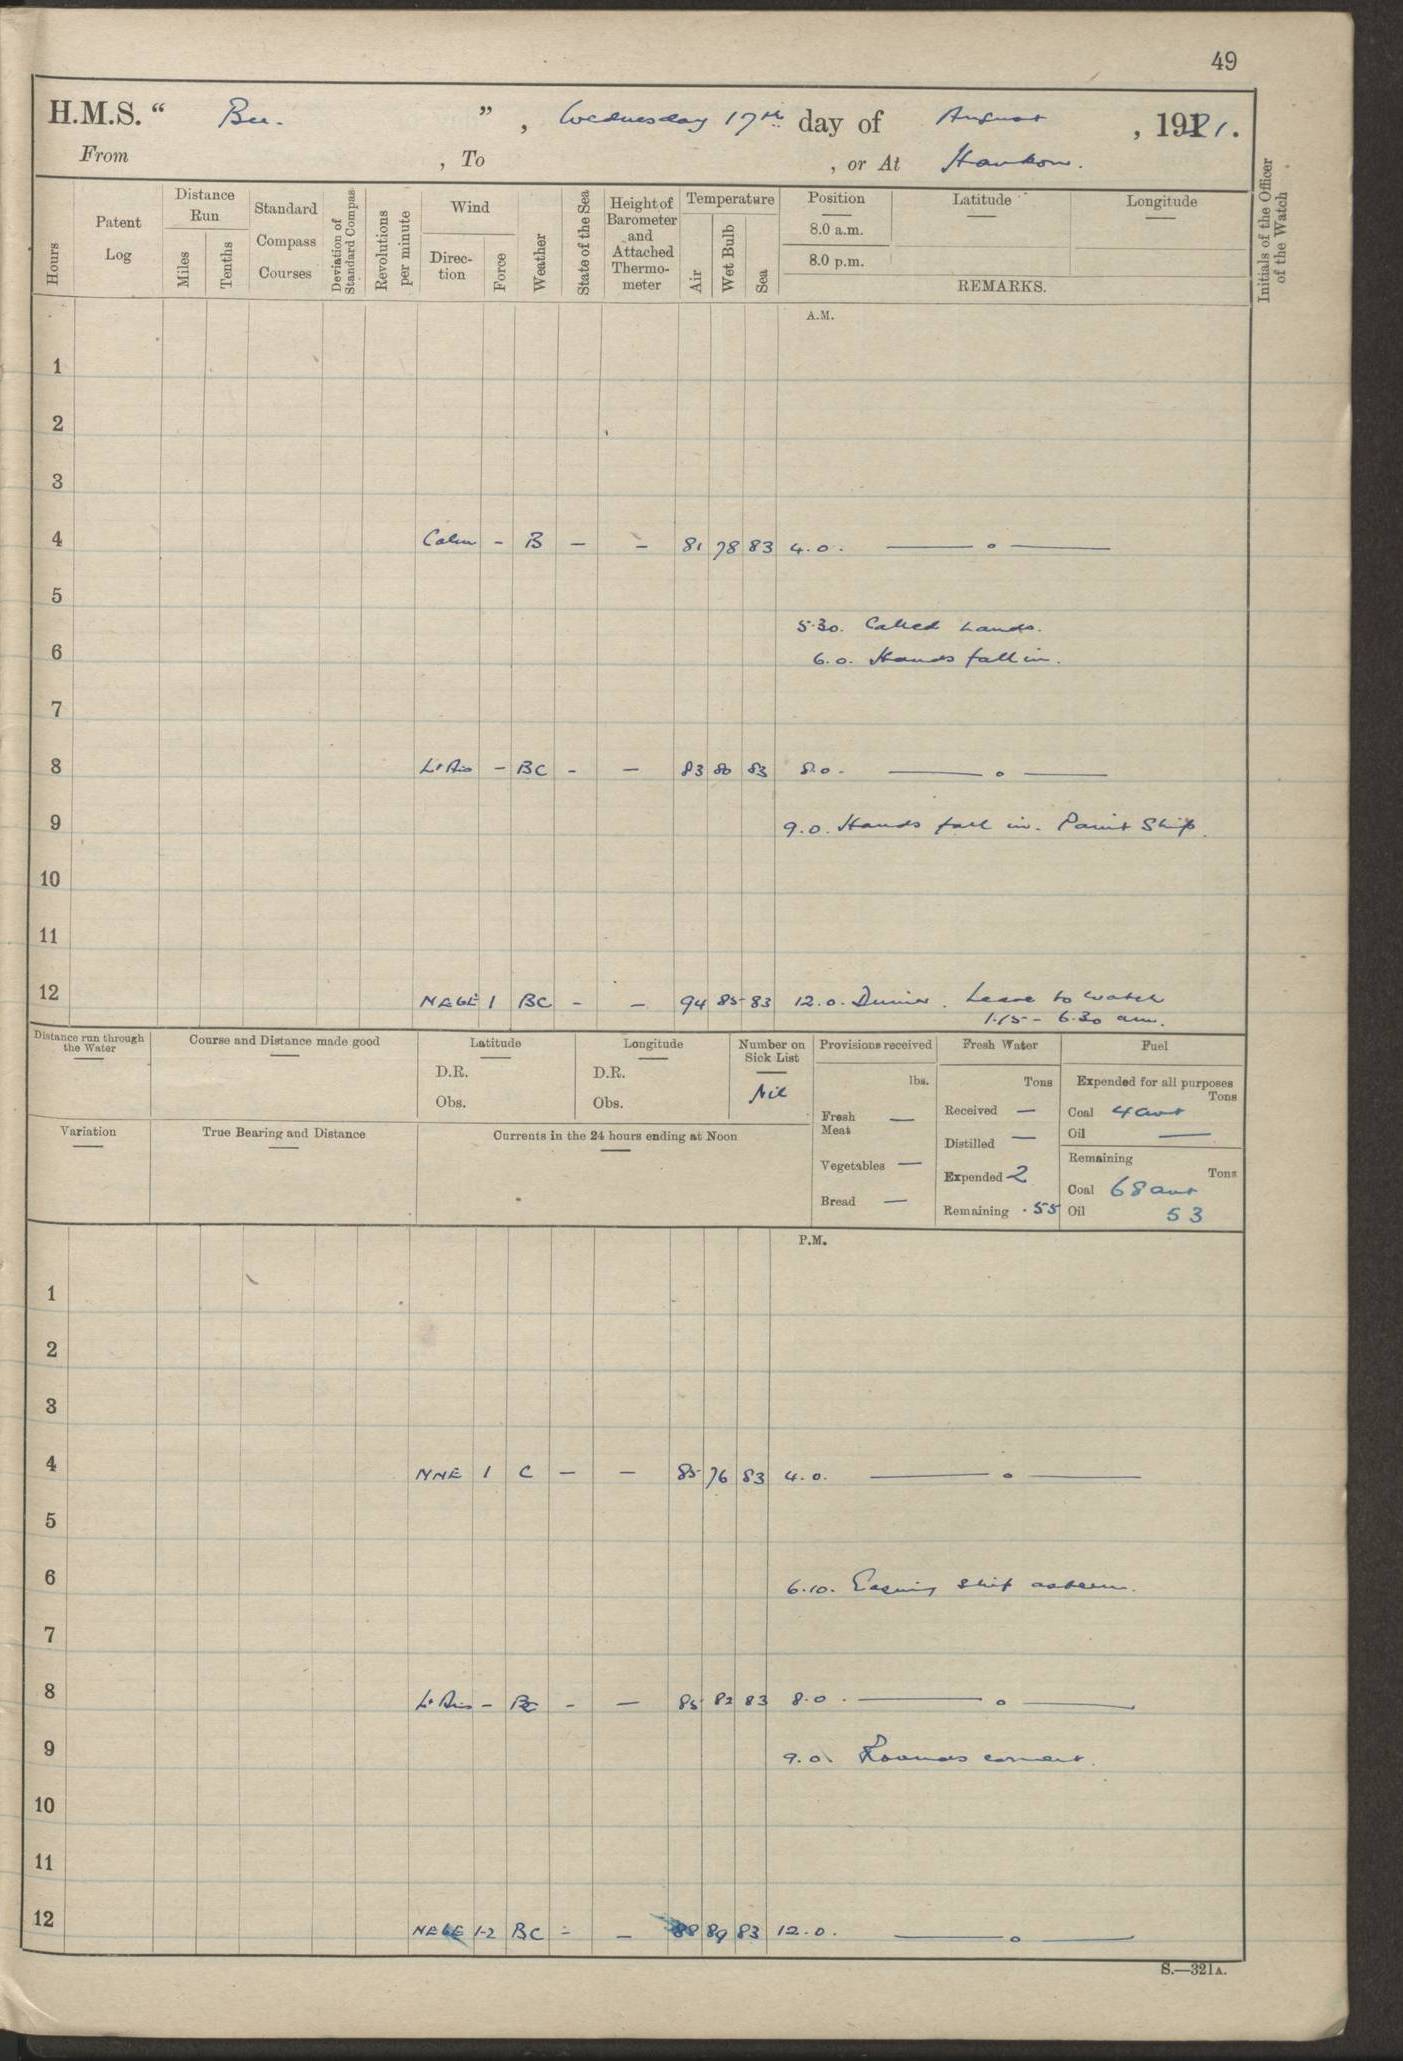 49
H.M.S. “ Bee. ” , Wednesday 17th day of August , 1921.
From , To , or At Hankow.
Hours
Patent Log
Distance Run
Miles
Tenths
Standard Compass Courses
Deviation of Standard Compass
Revolutions per minute
Wind
Direction
Force
Weather
State of the Sea
Height of Barometer and Attached Thermometer
Temperature
Air
Wet Bulb
Sea
Position
8.0 a.m.
8.0 p.m.
Latitude
Longitude
REMARKS.
Initials of the Officer of the Watch
A.M.
1
2
3
4 Calm - B - - 81 78 83 4.0. —— o ——
5
5.30. Called hands.
6 6.0. Hands fall in.
7
8 Lt Airs - BC - - 83 80 83 8.0. —— o ——
9 9.0. Hands fall in. Paint Ship.
10
11
12 NEbE 1 BC - - 94 85 83 12.0. Dinner. Leave to watch
1.15 - 6.30 am.
Distance run through the Water
Course and Distance made good
Latitude
D.R.
Obs.
Longitude
D.R.
Obs.
Number on Sick List
Nil
Provisions received
lbs.
Fresh Meat —
Vegetables —
Bread —
Fresh Water
Tons
Received —
Distilled —
Expended 2
Remaining .55
Fuel
Expended for all purposes
Tons
Coal 4 cwt
Oil —
Remaining
Tons
Coal 68 cwt
Oil 53
Variation
True Bearing and Distance
Currents in the 24 hours ending at Noon
P.M.
1
2
3
4 NNE 1 C - - 85 76 83 4.0. —— o ——
5
6 6.10. Easing ship astern.
7
8 Lt Airs - BC - - 85 82 83 8.0. —— o ——
9 9.0. Rounds correct.
10
11
12 NEbE 1-2 BC - - 88 89 83 12.0. —— o ——
S.—321A.